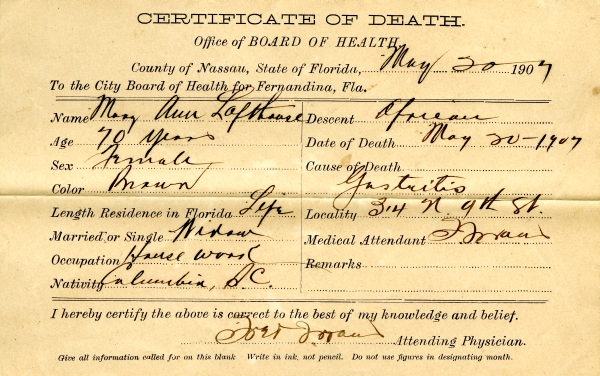 CERTIFICATE OF DEATH.
Office of BOARD OF HEALTH,
County of Nassau, State of Florida, May 20 1907
To the City Board of Health for Fernandina, Fla.
Name Mary Ann Lofthouse
Age 70 years
Sex Female
Color Brown
Length Residence in Florida Life
Married or Single Widow
Occupation House word
Nativity Columbia, S.C.
Descent African
Date of Death May 20-1907
Cause of Death
Gastritis
Locality 314 N 9th St.
Medical Attendant
Remarks
I hereby certify the above is correct to the best of my knowledge and belief.
Attending Physician.
Give all information called for on this blank Write in ink, not pencil. Do not use figures in designating month.